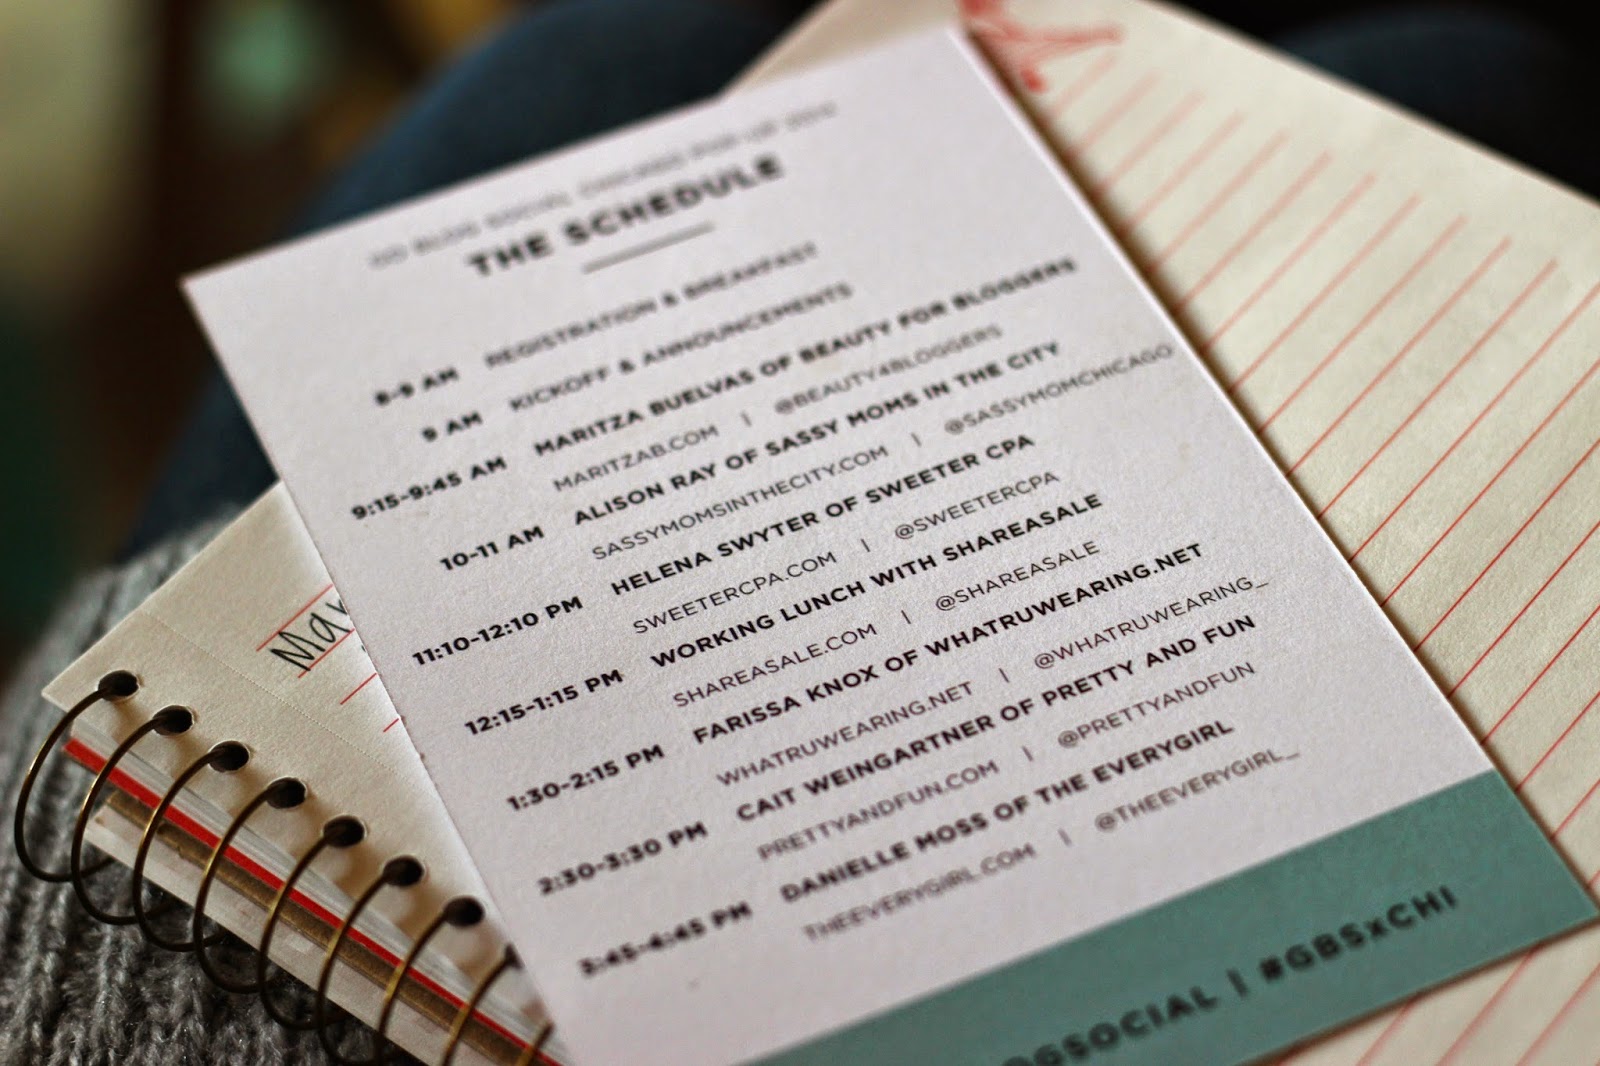 GO BLOG SOCIAL CHICAGO POP-UP 2014
THE SCHEDULE
8-9 AM REGISTRATION & BREAKFAST
9 AM KICKOFF & ANNOUNCEMENTS
9:15-9:45 AM MARITZA BUELVAS OF BEAUTY FOR BLOGGERS
MARITZAB.COM | @BEAUTY4BLOGGERS
10-11 AM ALISON RAY OF SASSY MOMS IN THE CITY
SASSYMOMSINTHECITY.COM | @SASSYMOMCHICAGO
11:10-12:10 PM HELENA SWYTER OF SWEETER CPA
SWEETERCPA.COM | @SWEETERCPA
12:15-1:15 PM WORKING LUNCH WITH SHAREASALE
SHAREASALE.COM | @SHAREASALE
1:30-2:15 PM FARISSA KNOX OF WHATRUWEARING.NET
WHATRUWEARING.NET | @WHATRUWEARING_
2:30-3:30 PM CAIT WEINGARTNER OF PRETTY AND FUN
PRETTYANDFUN.COM | @PRETTYANDFUN
3:45-4:45 PM DANIELLE MOSS OF THE EVERYGIRL
THEEVERYGIRL.COM | @THEEVERYGIRL_
OGSOCIAL | #GBSxCHI
Mar